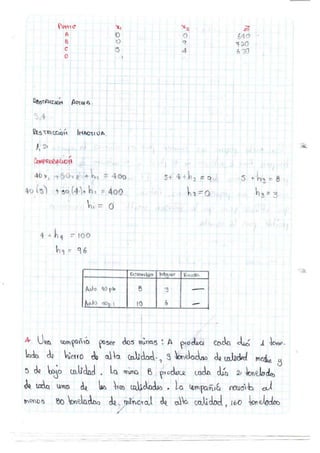 Punto x₁ x₂ Z
A 10 0
B 0 9
C 5 4
D
RESTRICCIÓN ACTIVA
3,4
RESTRICCIÓN INACTIVA
1,2
COMPROBACIÓN
40x₁ + 50x₂ + h₁ = 400
40(5) + 50(4) + h₁ = 400
h₁ = 0
5 + 4 + h₂ = 9
h₂ = 0
5 + h₃ = 8
h₃ = 3
4 + h₄ = 100
h₄ = 96
8 3 —
10 6 —
4 Una compañía posee dos minas: A produce cada día 1 tone-
lada de hierro de alta calidad, 3 toneladas de calidad media y
5 de baja calidad. La mina B produce cada día 2 toneladas
de cada una de las tres calidades. La compañía necesita al
menos 80 toneladas de mineral de alta calidad, 160 toneladas